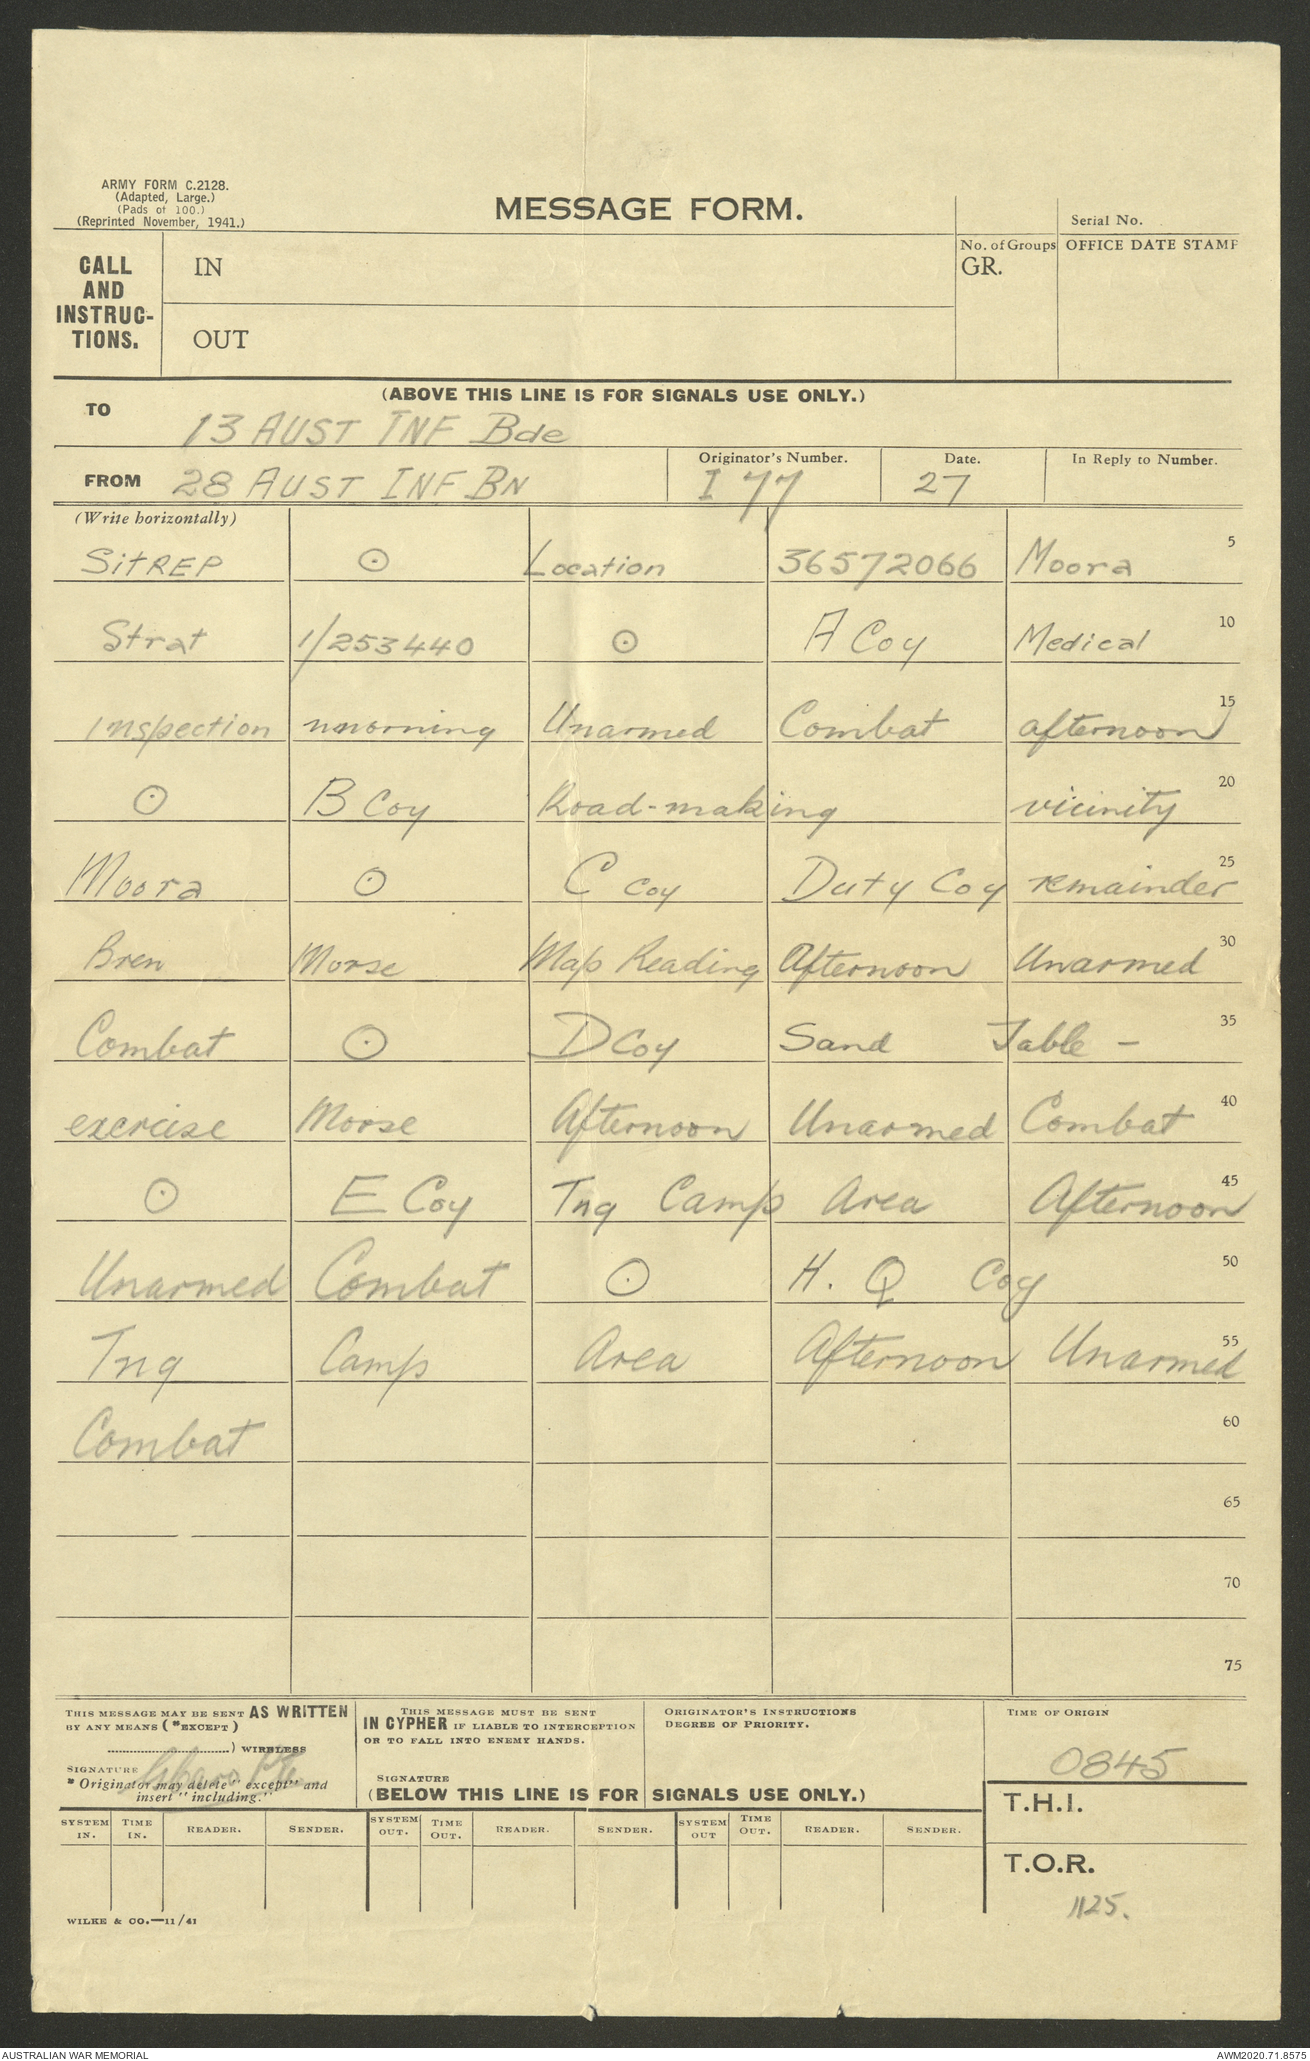 ARMY FORM C.2128.
(Adapted, Large.)
(Pads of 100.)
(Reprinted November, 1941.)
MESSAGE FORM.
Serial No.
CALL AND INSTRUC-TIONS.
IN
OUT
No. of Groups
GR.
OFFICE DATE STAMP
(ABOVE THIS LINE IS FOR SIGNALS USE ONLY.)
TO 13 AUST INF Bde
FROM 28 AUST INF BN
Originator's Number.
I 77
Date.
27
In Reply to Number.
(Write horizontally)
SitREP ⊙ Location 36572066 Moora 5
Strat 1/253440 ⊙ A Coy Medical 10
Inspection mmorning Unarmed Combat afternoon 15
⊙ B Coy Road-making vicinity 20
Moora ⊙ C Coy Duty Coy remainder 25
Bren Morse Map Reading Afternoon Unarmed 30
Combat ⊙ D Coy Sand Table - 35
exercise Morse Afternoon Unarmed Combat 40
⊙ E Coy Tng Camp Area Afternoon 45
Unarmed Combat ⊙ H. Q Coy 50
Tng Camp Area Afternoon Unarmed 55
Combat 60
65
70
75
THIS MESSAGE MAY BE SENT AS WRITTEN
BY ANY MEANS (*EXCEPT)
..............................) WIRELESS
SIGNATURE
* Originator may delete "except" and
insert "including."
THIS MESSAGE MUST BE SENT
IN CYPHER IF LIABLE TO INTERCEPTION
OR TO FALL INTO ENEMY HANDS.
SIGNATURE
ORIGINATOR'S INSTRUCTIONS
DEGREE OF PRIORITY.
TIME OF ORIGIN
0845
(BELOW THIS LINE IS FOR SIGNALS USE ONLY.)
T.H.I.
SYSTEM IN. TIME IN. READER. SENDER. SYSTEM OUT. TIME OUT. READER. SENDER. SYSTEM OUT TIME OUT. READER. SENDER.
T.O.R.
1125.
WILKE & CO.—11/41
AUSTRALIAN WAR MEMORIAL
AWM2020.71.8575